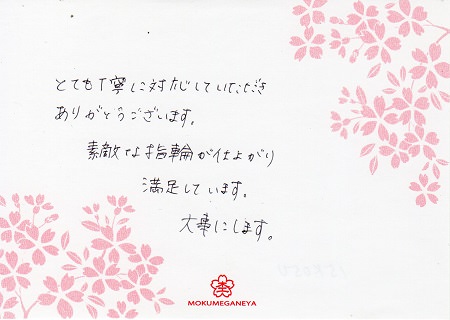 とても丁寧に対応していただき
ありがとうございます。
素敵な指輪が仕上がり
満足しています。
大事にします。
MOKUMEGANEYA